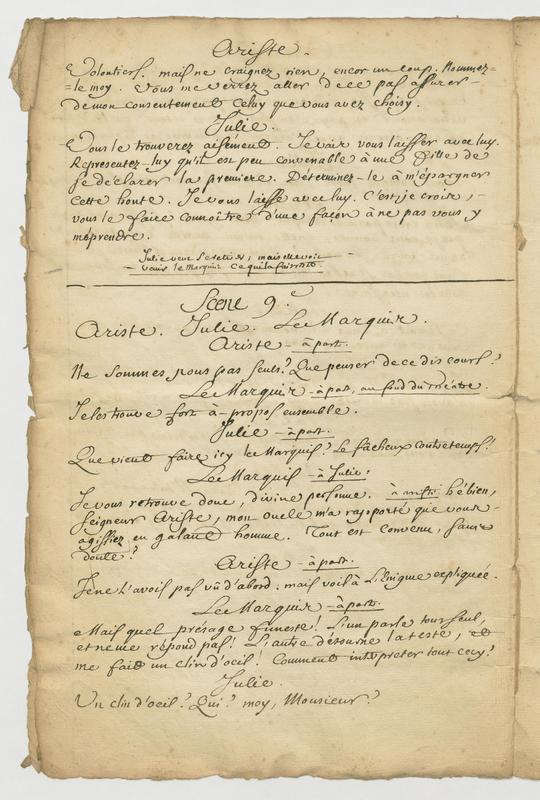 Ariste.
Volontiers. mais ne craignez rien, encor un coup. Nommez=
=le moy. Vous me verrez aller de ce pas assurer
de mon consentement Celuy que vous avez choisy.
Julie.
Vous le trouverez aisément. Je vais vous laisser avec luy.
Representez-luy qu'il est peu convenable à une fille de
se déclarer la premiere. Déterminez-le à m'épargner
cette honte. Je vous laisse avec luy. C'est, je crois,
vous le faire connoître d'une façon à ne pas vous y
méprendre.
Julie veut se retirer; mais elle voit
venir le Marquis ce qui la fait rester
Scene 9.e
Ariste. Julie. Le Marquis.
Ariste - à part.
Ne sommes nous pas seuls? Que penser de ce discours?
Le Marquis - à part, au fond du théatre.
Je les trouve fort à-propos ensemble.
Julie - à part.
Que vient faire icy le Marquis? Le fâcheux contretemps!
Le Marquis - à Julie:
Je vous retrouve donc, divine personne. à ariste: hé bien,
seigneur Ariste, mon oncle m'a rapporté que vous
agissiez en galant homme. Tout est convenu, sans
doute?
Ariste - à part.
Je ne l'avois pas vû d'abord: mais voilà l'Enigme expliquée.
Le Marquis - à part.
Mais quel présage funeste! L'un parle tour seul,
et ne me répond pas! L'autre détourne la teste, et
me fait un clin d'oeil! Comment intérpreter tout cecy?
Julie.
Un clin d'oeil? Qui? moy, Monsieur?